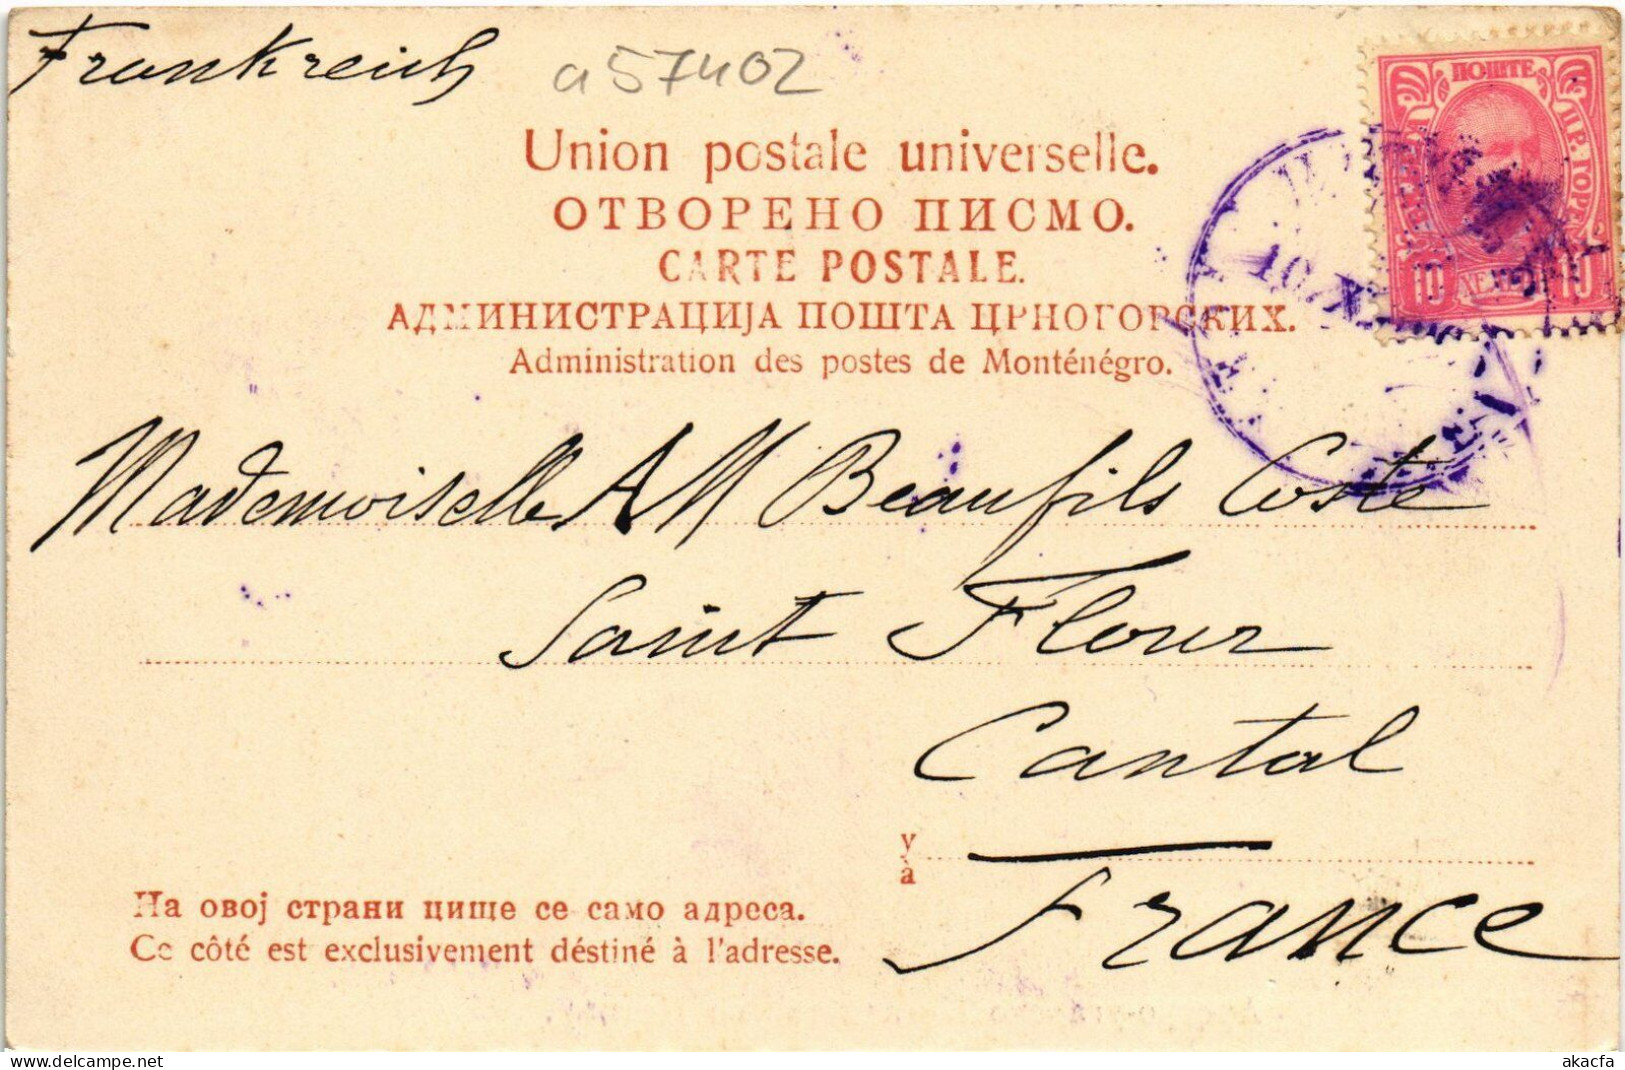 Frankreich
a57402
Union postale universelle.
ОТВОРЕНО ПИСМО.
CARTE POSTALE.
АДМИНИСТРАЦИЈА ПОШТА ЦРНОГОРСКИХ.
Administration des postes de Monténégro.
ПОШТЕ ЦР. ГОРЕ
10 10
Mademoiselle AM Beaufils Coste
Saint Flour
Cantal
у
à
France
На овој страни цише се само адреса.
Ce côté est exclusivement déstiné à l'adresse.
akacfa